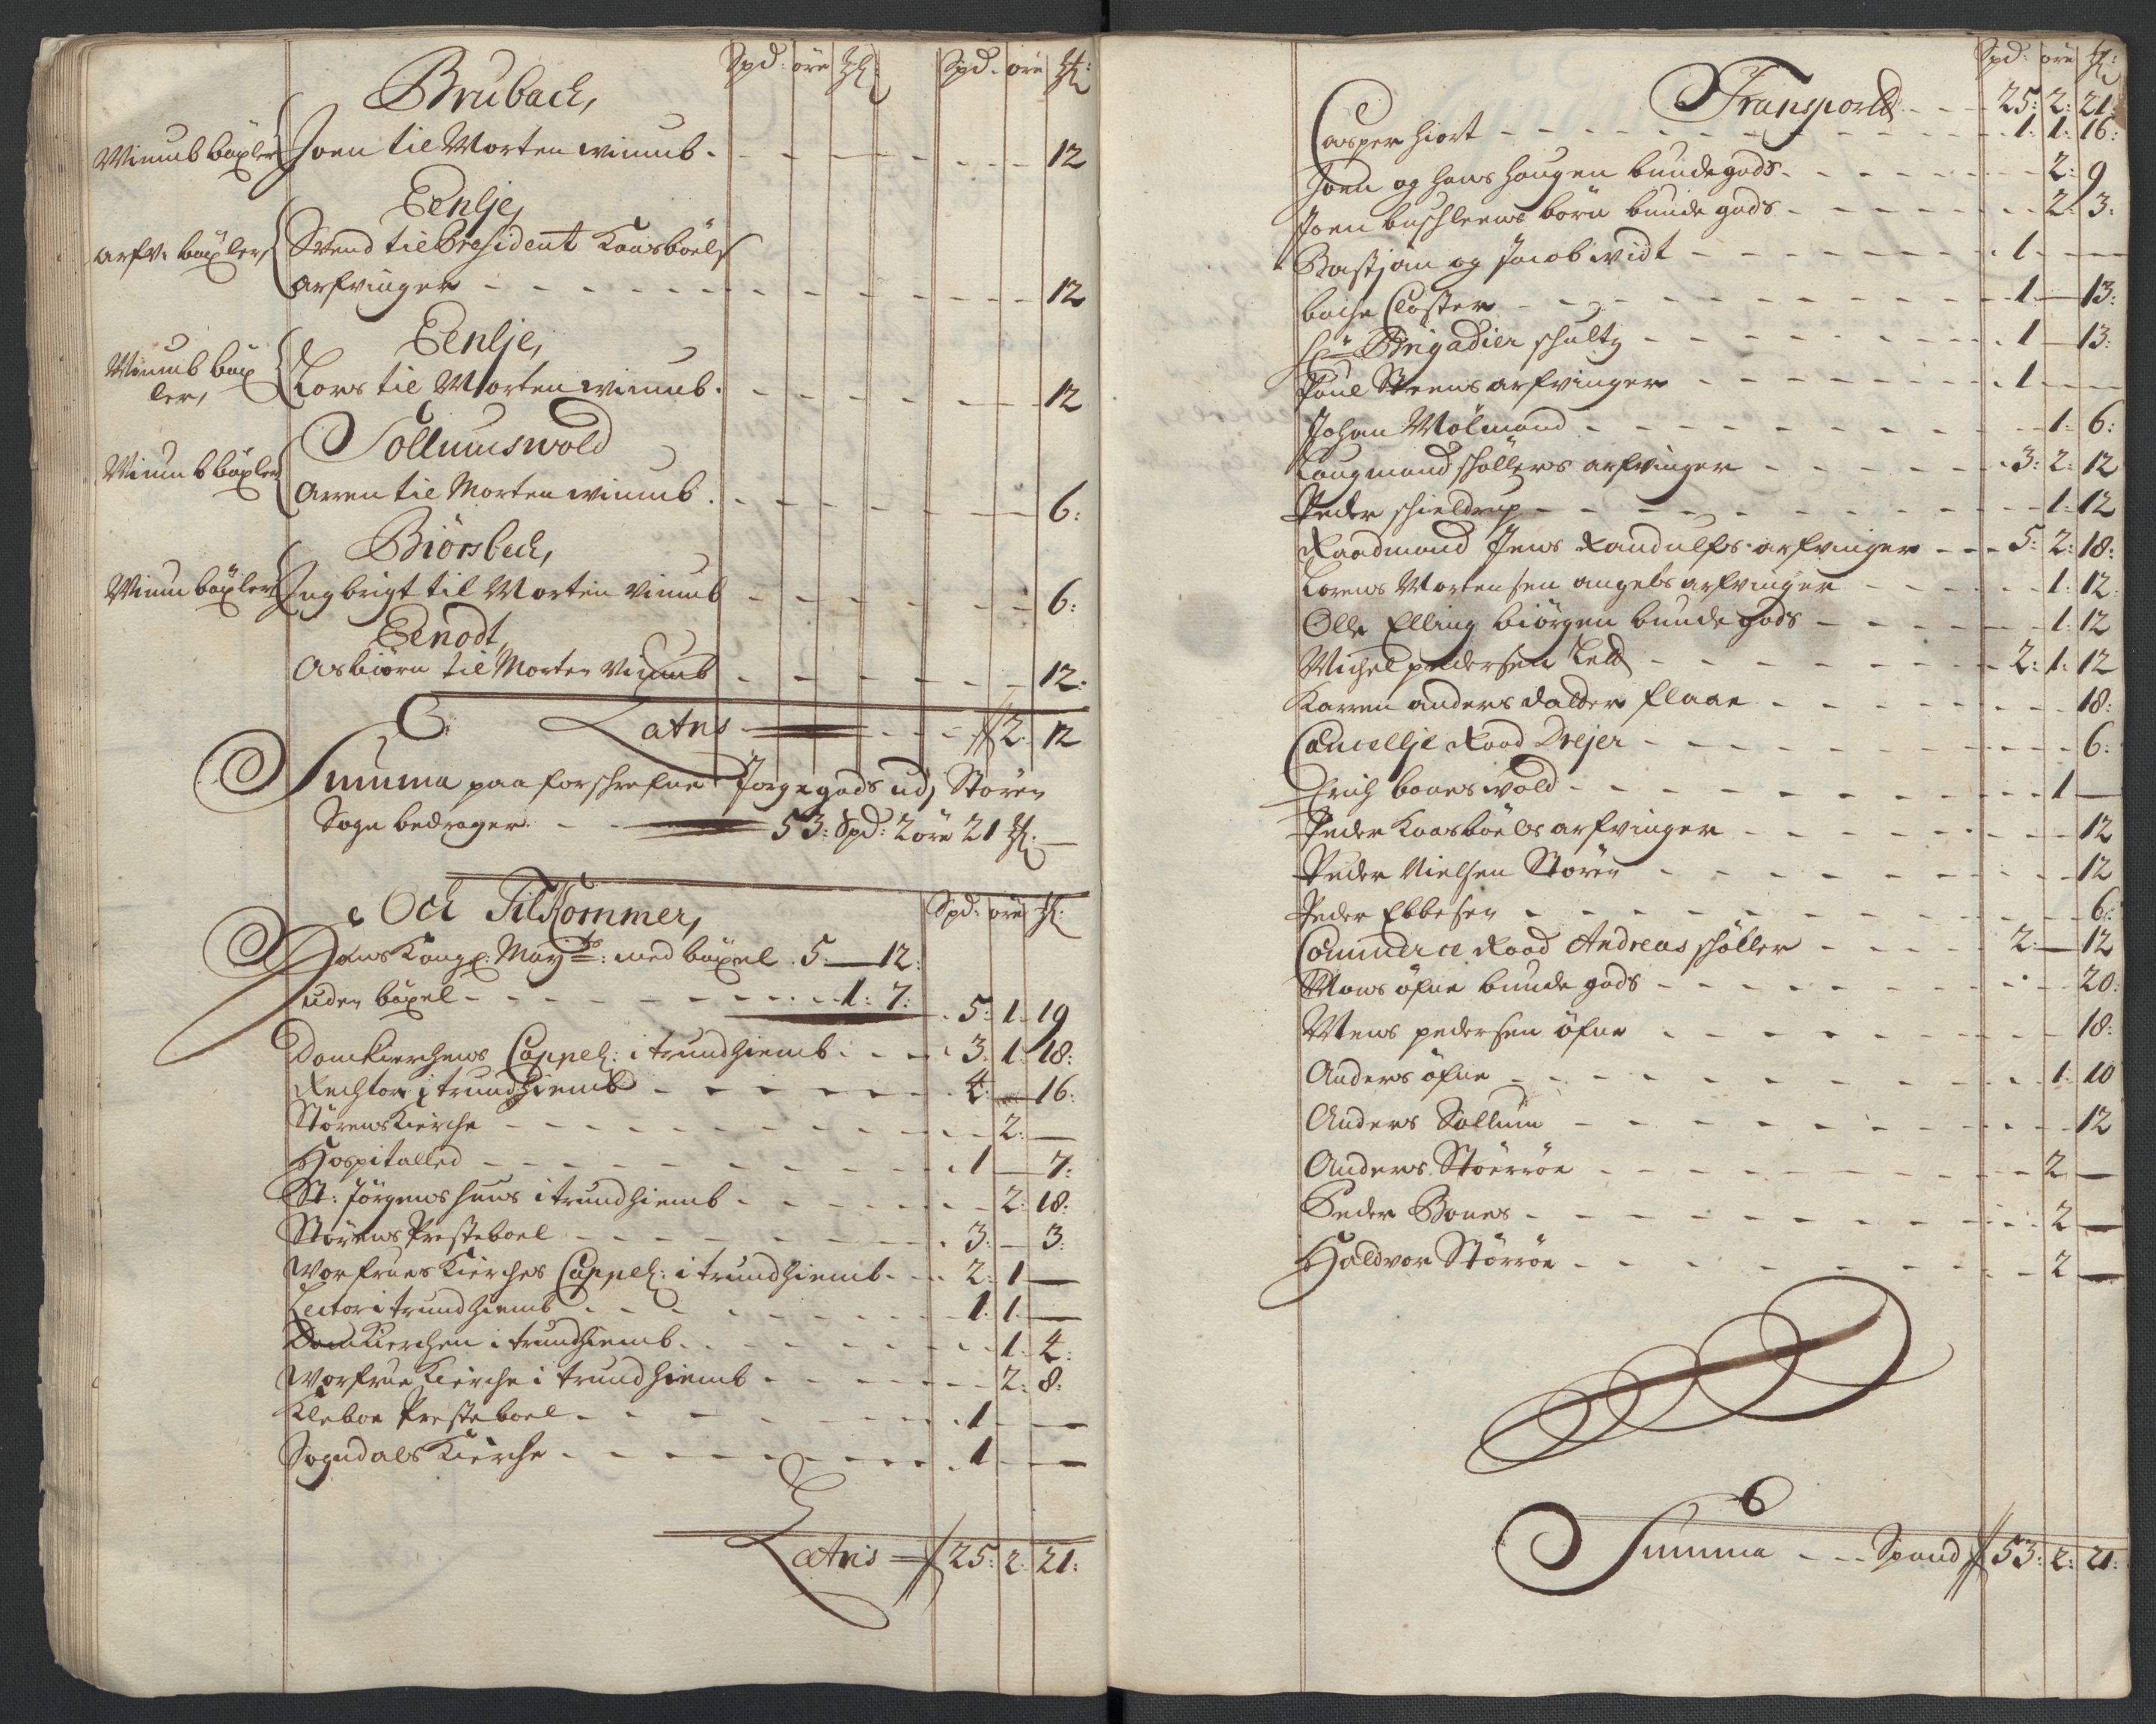 Spd: öre
Spd: öre
Brubach,
Winnb böxler
Joen til Morten winnb. 12
Eenlje,
arfv: böxler
Svend til President Kaasböels
arfvinger 12
Eenlje,
Winnb böx
ler,
Lars til Morten winnb. 12
Sollumswold
Winnb böxler
Arren til Morten winnb. 6:
Biörsbech,
Winn böxler
Ingbrigt til Morten Winnb 6:
Eenodt,
Asbiörn til Morten Winnb 12:
Latus 2: 12
Summa paa forschrefne Jorgegods udj Stören
Sogn bedrager. 53: Spd: 2 öre 21
Och Tilkommer,
Spd: öre
Hans Kongl: May: med böxel. 5: — 12:
uden böxel 1: 7: 5: 1: 19
Domkierchens Cappel: i trundhiemb. 3: 1: 18:
Rechtor i trundhiemb 4: — 16:
Störens Kierche 2: —
Hospitalled 1 — 7:
St: Jörgens huus i trundhiemb 2: 18:
Störens Presteboel 3: — 3:
Worfrues Kierches Cappel: i trundhiemb. 2: 1 —
Lector i trundhiemb 1: 1: —
Domkierchen i trundhiemb. 1: 4:
Worfrue Kierche i trundhiemb 2: 8:
Kleboe Presteboel 1 — —
Sogndals Kierche 1 — —
Latus 25: 2: 21:
Spd: öre
Transport 25: 2: 21:
Casper Hiort 1: 1: 16:
Joen og Hans Haugen bundegods 2: 9
Joen buschleens börn bunde gods 2: 3:
Bastjan og Jacob widt 1 — —
bache Closter 1 — 13:
Hr: Brigadier schultz 1 — 13:
Poul Steens arfvinger 1 — —
Johan Mölmand 1: 6:
Laugmand schöllers arfvinger 3: 2: 12
Peder schieldrup 1: 12
Raadmand Jens Randulfs arfvinger 5: 2: 18:
Lorens Mortensen angels arfvinger 1: 12:
Olle Elling biörgen bunde gods 1: 12
Michel pedersen Teld 2: 1: 12
Karren anders dalder flaae 18:
Cancellje Raad Drejer 6:
Erich boneswold 1 —
Peder Kaasböels arfvinger 12
Peder Nielsen Stören 12
Peder Ebbesen 6:
Commerce Raad Andreas schöller 2: — 12
Mons öfne bunde gods 20:
Mens pedersen öfne 18:
Anders öfne 1: 10
Anders Sollum 12
Anders Störröe 2 —
Peder Bones 2 —
Haldvor Störröe 2 —
Summa Spand 53: 2: 21: